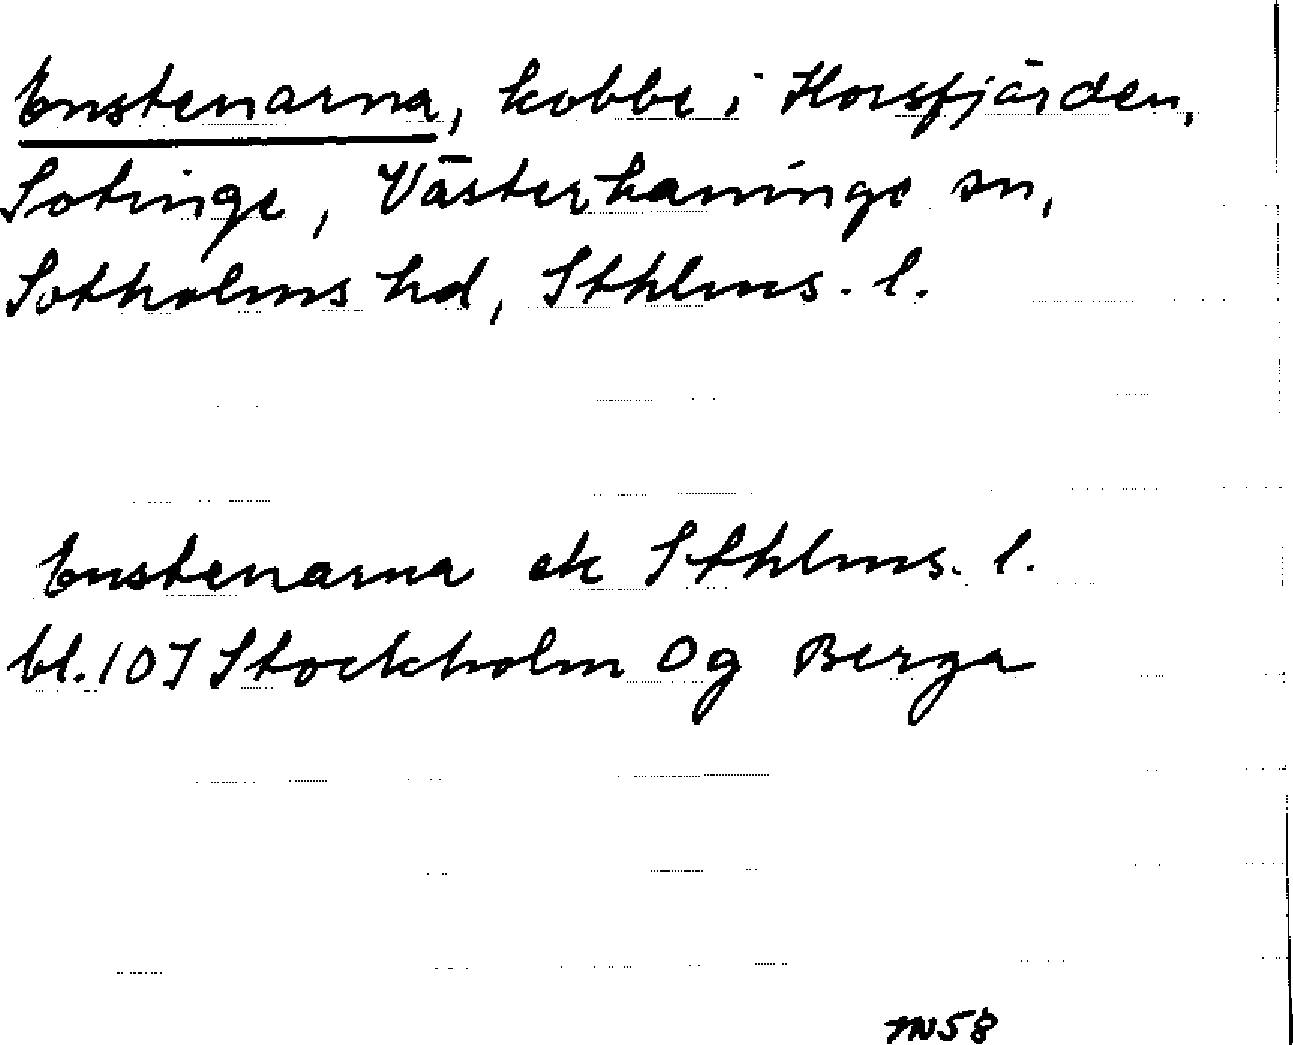 Enstenarna, kobbe i Horsfjärden,
Sotinge, Västerhaninge sn,
Sotholms hd, Sthlms. l.
Enstenarna ek Sthlms. l.
bl. 10J Stockholm Og Berga
MN58